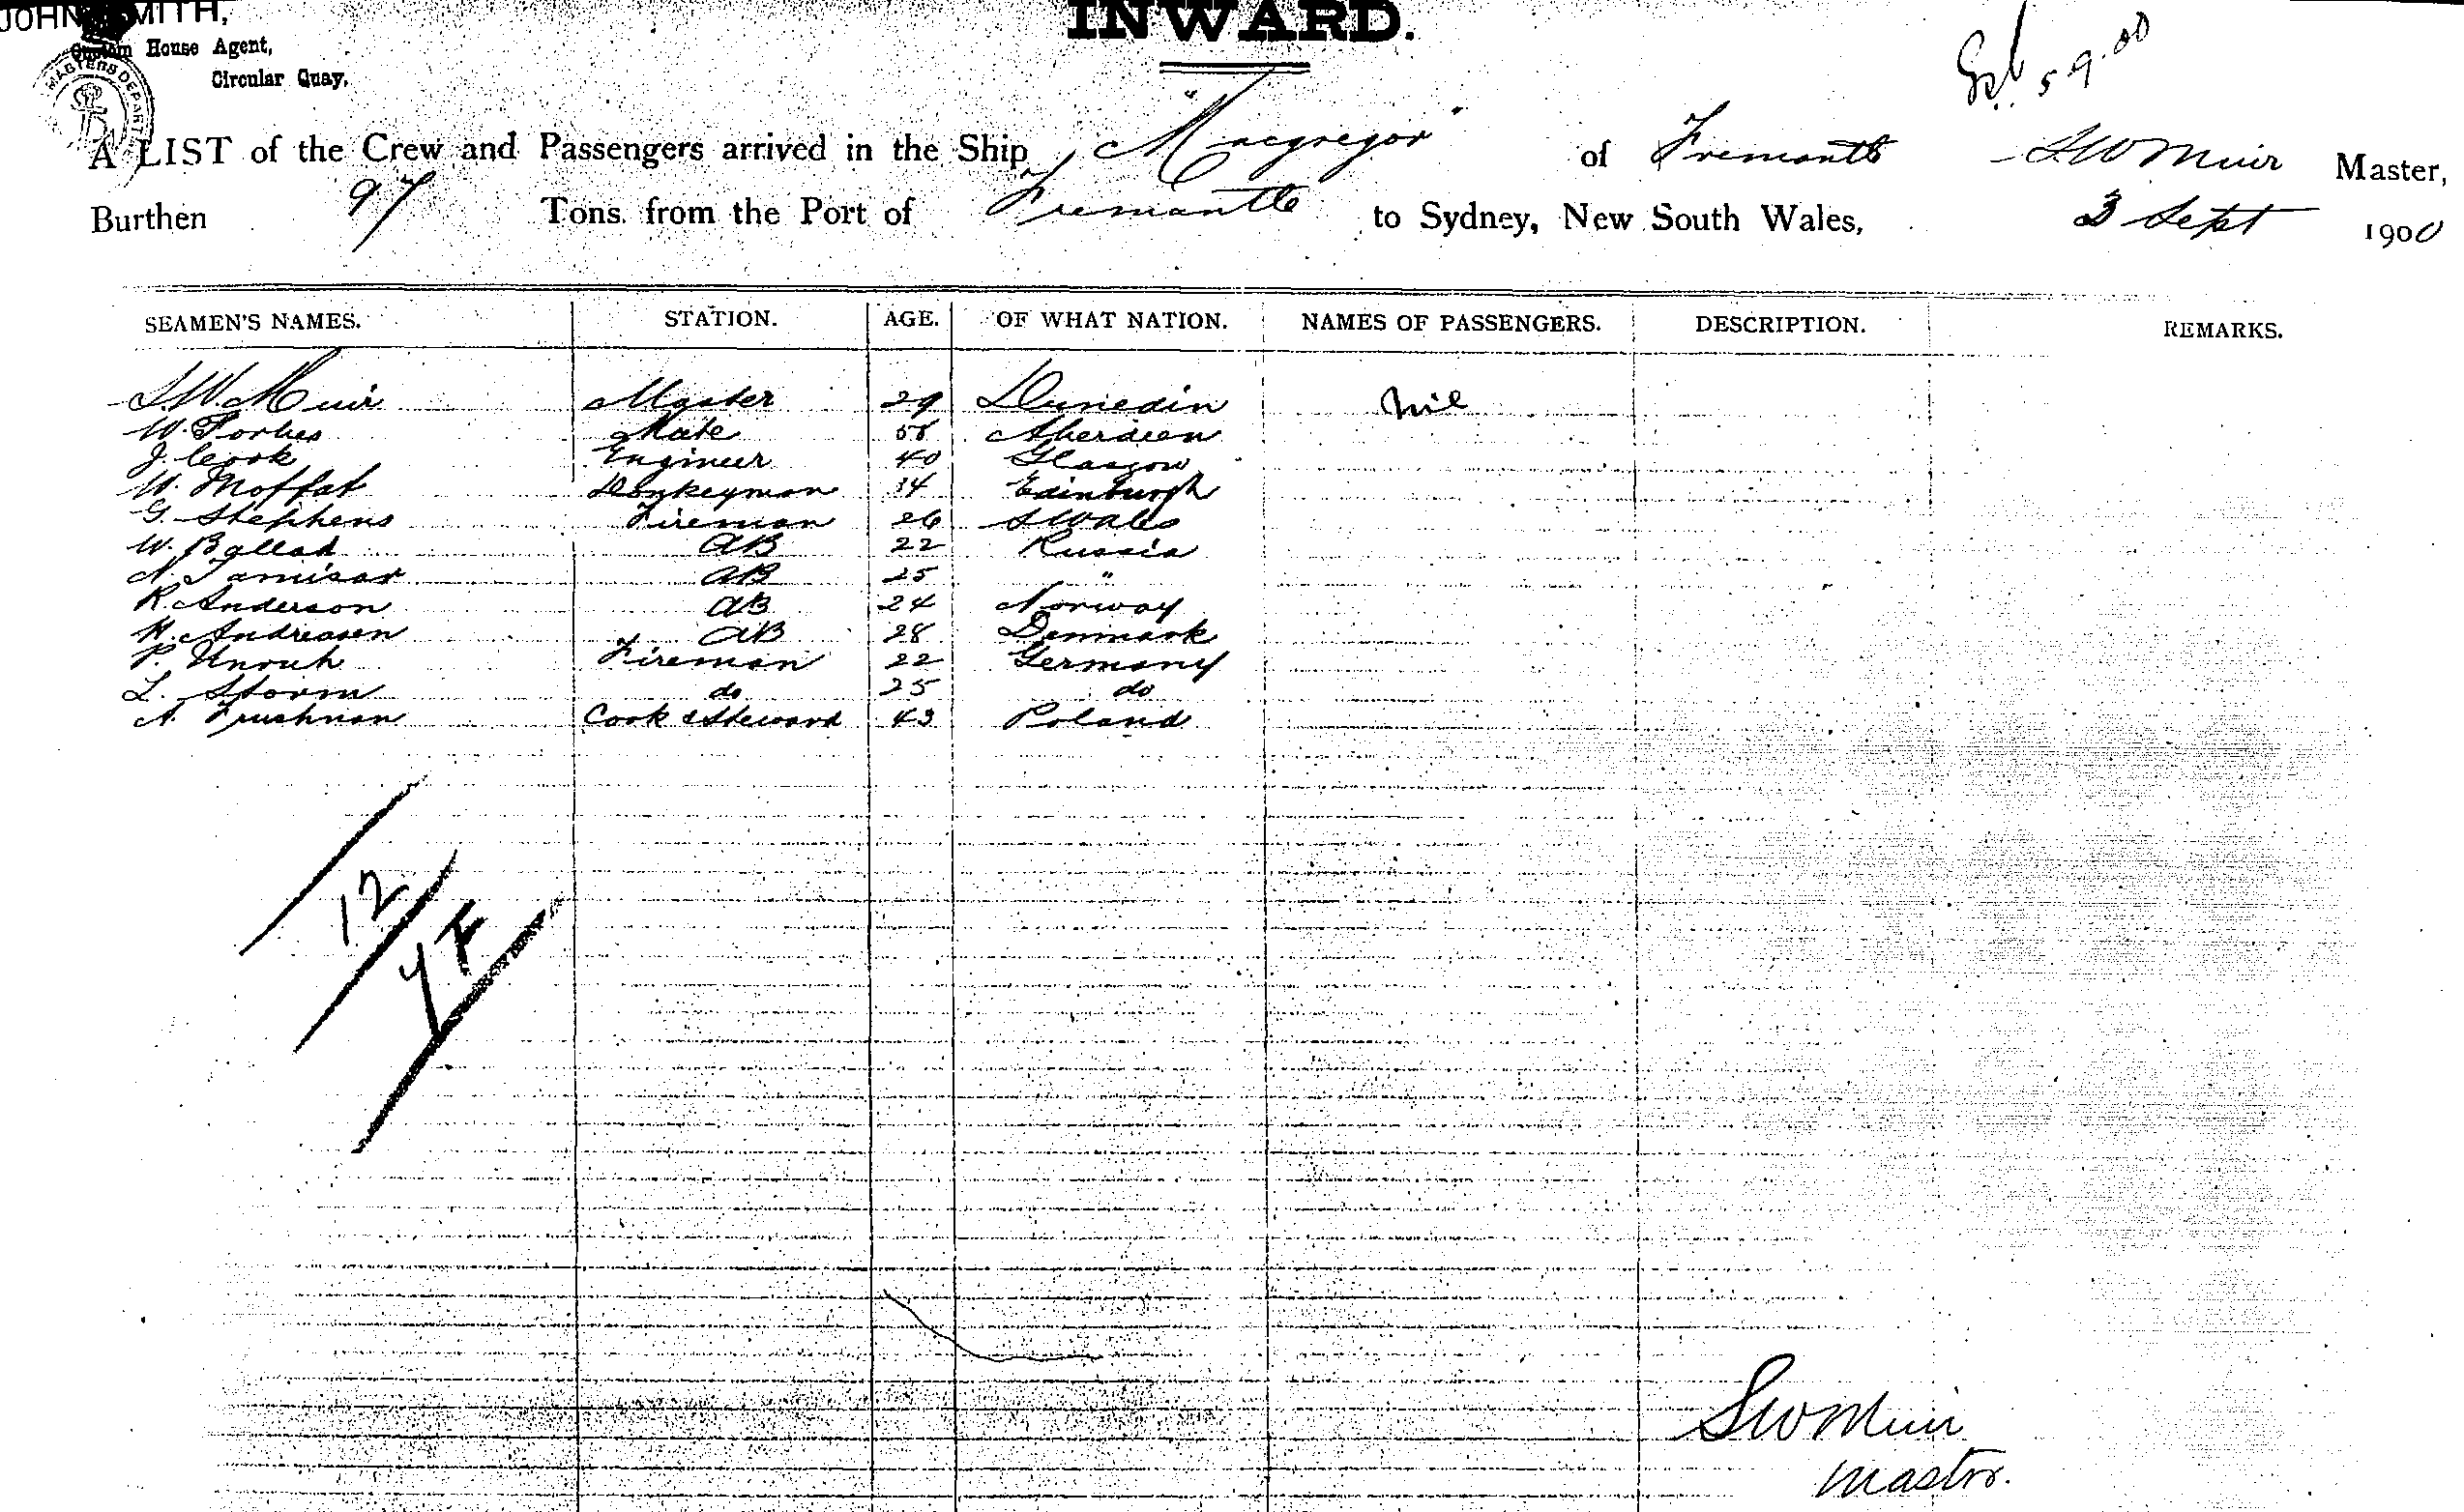 JOHN SMITH,
Custom House Agent,
Circular Quay.
MASTERS DEPART
INWARD.
5.9.00
A LIST of the Crew and Passengers arrived in the Ship "Macgregor" of Fremantle S W Muir Master,
Burthen 97 Tons. from the Port of Fremantle to Sydney, New South Wales, 3 Sept 1900
SEAMEN'S NAMES. STATION. AGE. OF WHAT NATION. NAMES OF PASSENGERS. DESCRIPTION. REMARKS.
S.W. Muir Master 29 Dunedin nil
W. Forbes Mate 58 Aberdeen
J. Cook Engineer 40 Glasgow
W. Moffat Donkeyman 34 Edinburgh
G. Stephens Fireman 26 S Wales
W. Ballad AB 22 Russia
N. Tamisar AB 25 "
R. Anderson AB 24 Norway
H. Andreasen AB 28 Denmark
P. Unruh Fireman 22 Germany
L. Storm do 25 do
A. Frushnan Cook & Steward 43 Poland
12
S W Muir
Master.